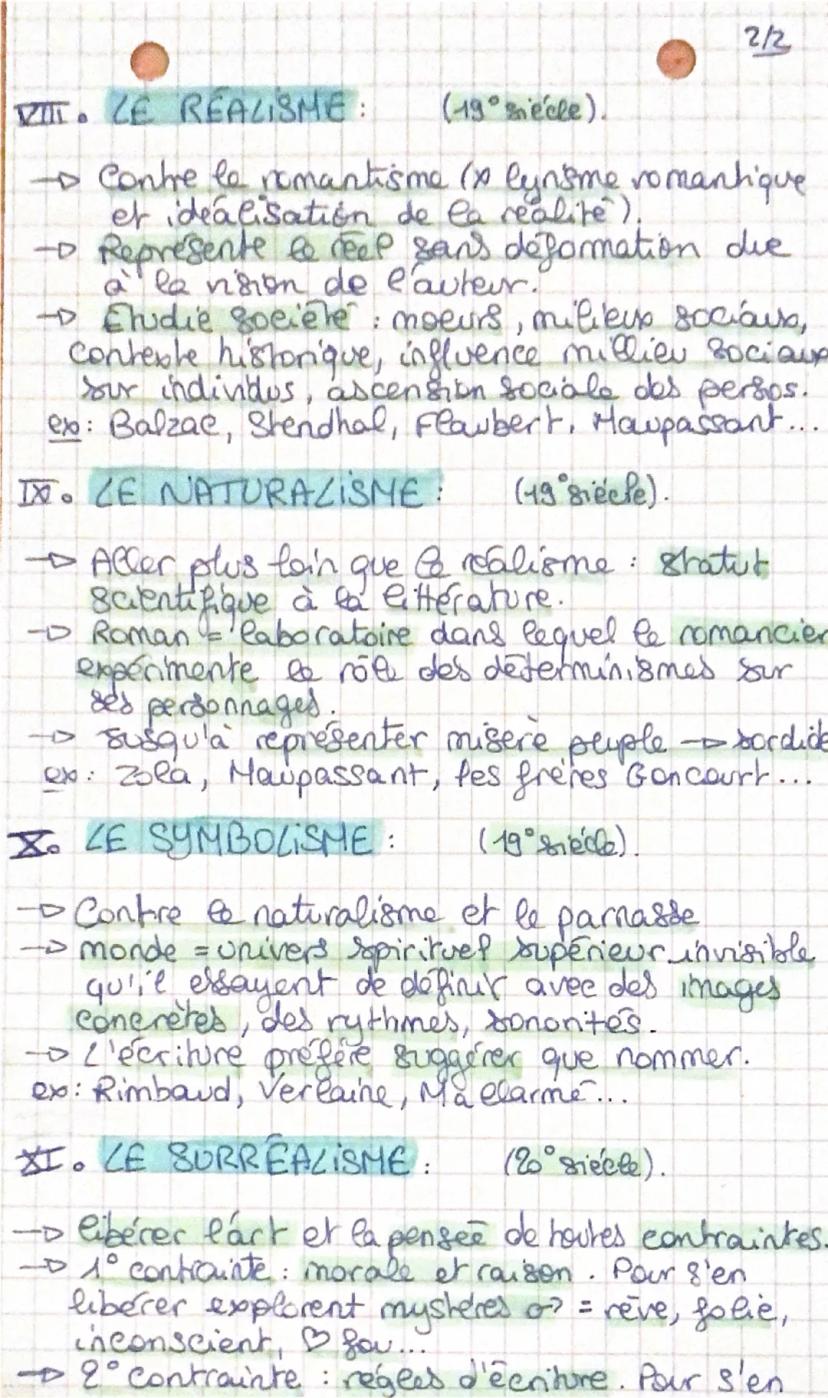 2/2
VIII. LE RÉALISME : (19° siècle).
→ Contre le romantisme (x lyrisme romantique
et idéalisation de la réalité).
→ Représente le réel sans déformation due
à la vision de l'auteur.
→ Etudie société : moeurs, milieux sociaux,
contexte historique, influence millieu sociaux
sur individus, ascension sociale des persos.
ex : Balzac, Stendhal, Flaubert, Maupassant...
IX. LE NATURALISME : (19° siècle).
→ Aller plus loin que le réalisme : statut
scientifique à la littérature.
→ Roman = laboratoire dans lequel le romancier
expérimente le rôle des déterminismes sur
ses personnages.
→ Jusqu'à représenter misère peuple → sordide
ex : Zola, Maupassant, les frères Goncourt...
X. LE SYMBOLISME : (19° siècle).
→ Contre le naturalisme et le parnasse
→ monde = univers spirituel supérieur invisible
qu'il essayent de définir avec des images
concrètes, des rythmes, sonorités.
→ L'écriture préfère suggérer que nommer.
ex : Rimbaud, Verlaine, Mallarmé...
XI. LE SURRÉALISME : (20° siècle).
→ libérer l'art et la pensée de toutes contraintes.
→ 1° contrainte : morale et raison. Pour s'en
libérer explorent mystères = rêve, folie,
inconscient, ♡ fou...
→ 2° contrainte : règles d'écriture. Pour s'en